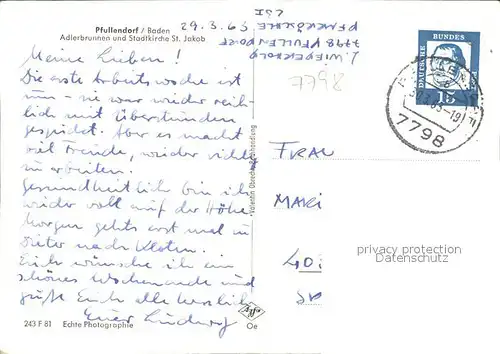 Pfullendorf / Baden
Adlerbrunnen und Stadtkirche St. Jakob
29.3.63
7798 PFULLENDORF
7798
DEUTSCHE BUNDES
15
7798
Meine Lieben!
Die erste Arbeitswoche ist
um - sie war wieder reich-
lich mit Überstunden
gespickt. Aber es macht
viel Freude, wieder richtig
zu arbeiten.
Gesundheitlich bin ich
wieder voll auf der Höhe.
Morgen gehts erst mal
weiter nach
Euch wünsche ich ein
schönes Wochenende und
grüße Euch alle herzlich
Euer Ludwig
FRAU
MARI
privacy protection
Agfa
243 F 81 Echte Photographie
Oe